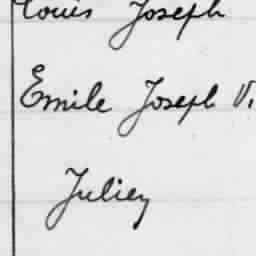 Louis Joseph
Emile Joseph V.
Julien